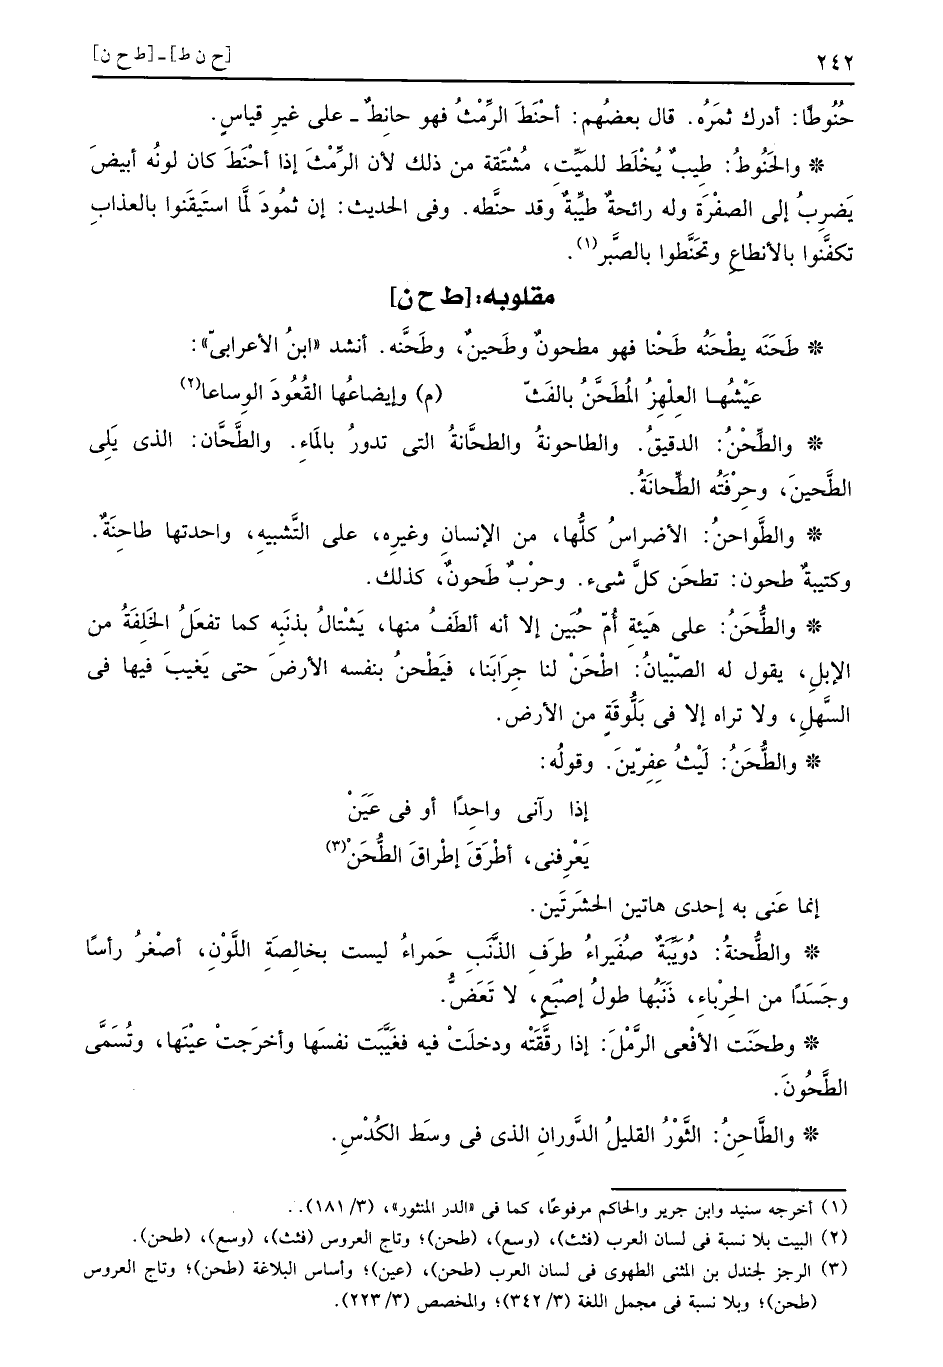 ٢٤٢
[ح ن ط] ـ [ط ح ن]
حُنُوطًا: أدرك ثمَرُه. قال بعضُهم: أحْنَطَ الرِّمْثُ فهو حانِطٌ ـ على غيرِ قياسٍ.
* والحَنُوطُ: طِيبٌ يُخْلَط للمَيِّت، مُشْتَقة من ذلك لأن الرِّمْثَ إذا أحْنَطَ كان لونُه أبيضَ
يَضرِبُ إلى الصفْرَة وله رائحةٌ طيِّبةٌ وقد حنَّطه. وفى الحديث: إن ثمُودَ لمَّا استَيقَنوا بالعذابِ
تكفَّنوا بالأنطاعِ وتحَنَّطوا بالصَّبر(١).
مقلوبه: [ط ح ن]
* طَحَنَه يطْحَنُه طَحْنا فهو مطحونٌ وطَحينٌ، وطَحَّنه. أنشد «ابنُ الأعرابىّ»:
عَيْشُهـا العِلْهِزُ المُطَحَّنُ بالفَثّ (م) وإيضاعُها القُعُودَ الوِساعا(٢)
* والطِّحْنُ: الدقيقُ. والطاحونةُ والطحَّانةُ التى تدورُ بالمَاء. والطَّحَّان: الذى يَلى
الطَّحينَ، وحِرْفَتُه الطِّحانَةُ.
* والطَّواحنُ: الأضراسُ كلُّها، من الإنسانِ وغيرِه، على التَّشبيهِ، واحدتها طاحِنَةٌ.
وكتيبةٌ طحون: تطحَن كلَّ شىء. وحرْبٌ طَحونٌ، كذلك.
* والطُّحَنُ: على هَيئةِ أُمّ حُبَين إلا أنه ألطَفُ منها، يَشْتالُ بذنَبِه كما تفعَلُ الخَلفَةُ من
الإبلِ، يقول له الصّبْيانُ: اطْحَنْ لنا جِرَابَنا، فيَطْحنُ بنفسه الأرضَ حتى يَغيبَ فيها فى
السَّهلِ، ولا تراه إلا فى بَلُّوقَةٍ من الأرض.
* والطُّحَنُ: لَيْثُ عفِرّينَ. وقولُه:
إذا رآنى واحِدًا أو فى عَيَنْ
يَعْرِفنى، أطْرَقَ إطْراقَ الطُّحَنْ(٣)
إنما عَنى به إحدى هاتين الحشرَتَين.
* والطُّحنةُ: دُوَيْبَّةٌ صفَيراءُ طرَفِ الذَّنَبِ حَمراءُ ليست بخالصَةِ اللَّوْنِ، أصْغرُ رأسًا
وجَسَدًا من الحِرْباءِ، ذَنَبُها طولُ إصْبَعٍ، لا تَعَضُّ.
* وطحنَت الأفْعى الرَّمْلَ: إذا رقَّقَتْه ودخلَتْ فيه فغَيَّبَت نفسَها وأخرَجتْ عينَها، وتُسَمَّى
الطَّحُونَ.
* والطَّاحِنُ: الثَّوْرُ القليلُ الدَّورانِ الذى فى وسَط الكُدْسِ.
(١) أخرجه سنيد وابن جرير والحاكم مرفوعًا، كما فى «الدر المنثور»، (٣/ ١٨١)..
(٢) البيت بلا نسبة فى لسان العرب (فثث)، (وسع)، (طحن)؛ وتاج العروس (فثث)، (وسع)، (طحن).
(٣) الرجز لجندل بن المثنى الطهوى فى لسان العرب (طحن)، (عين)؛ وأساس البلاغة (طحن)؛ وتاج العروس
(طحن)؛ وبلا نسبة فى مجمل اللغة (٣/ ٣٤٢)؛ والمخصص (٣/ ٢٢٣).